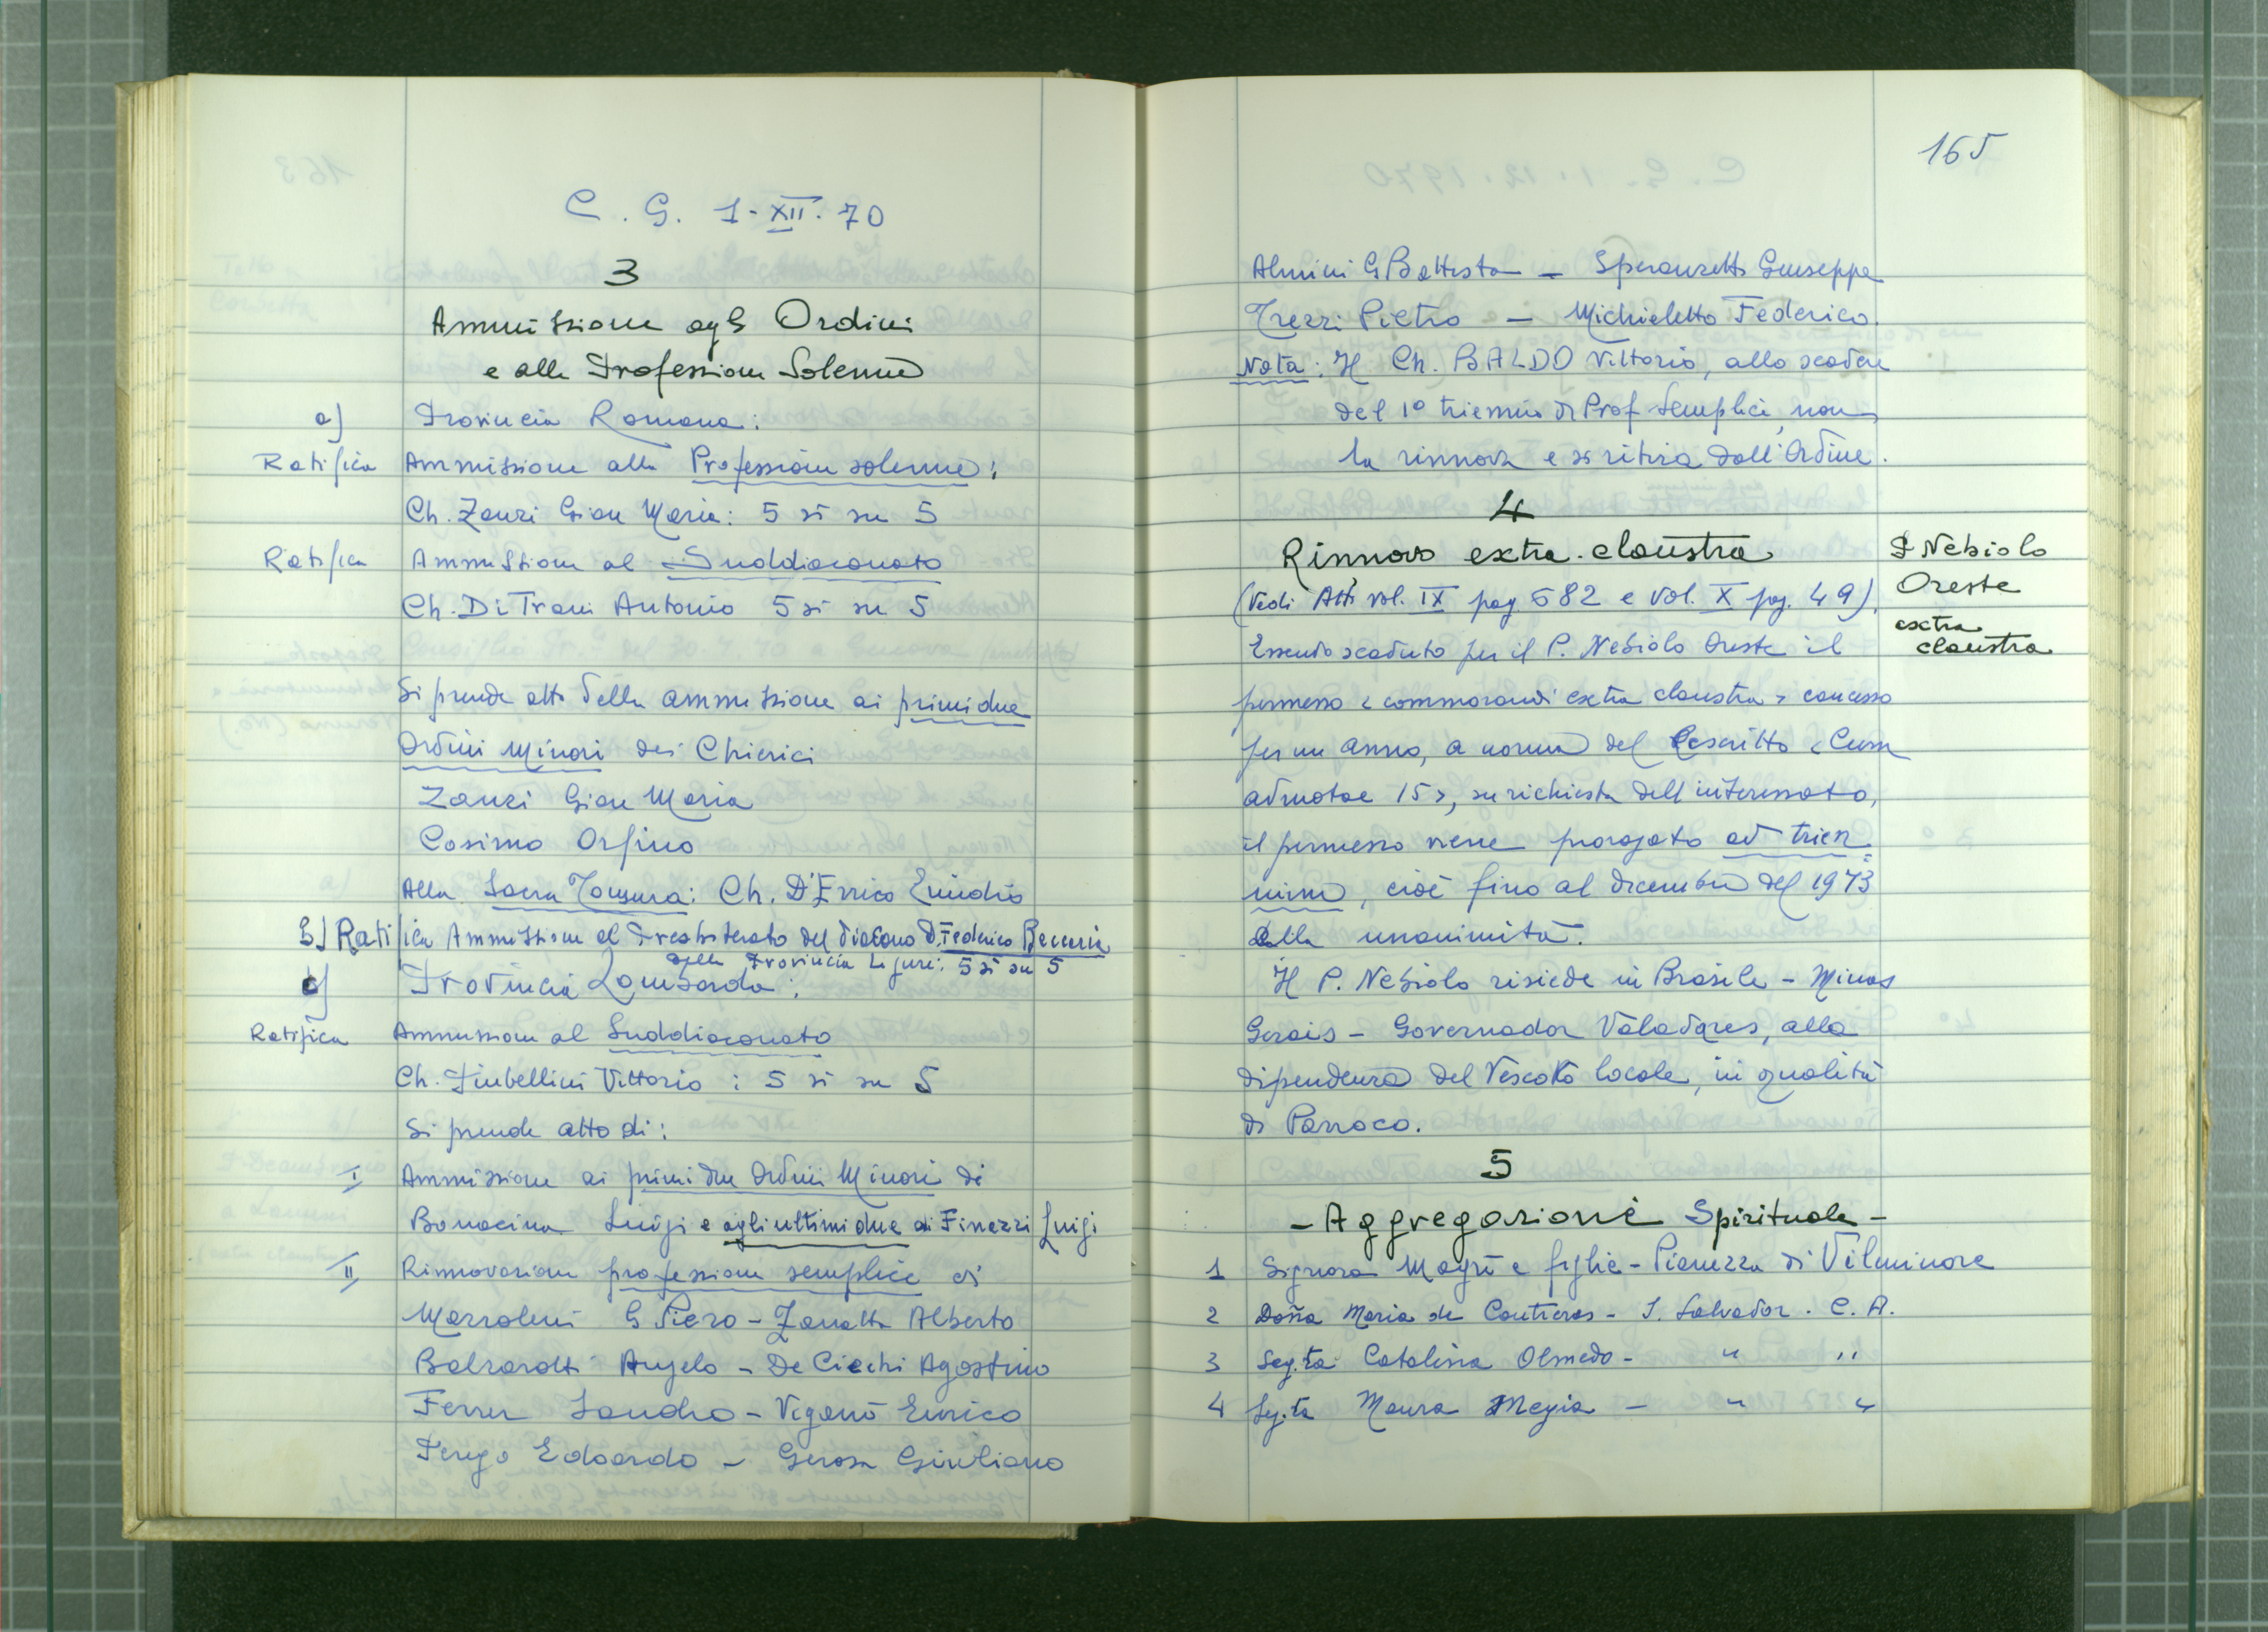 C. G. 1-XII-70
3
Ammissione agli Ordini
e alla Professione Solenne
a) Provincia Romana:
Ratifica Ammissione alla Professione solenne:
Ch. Zanzi Gian Maria: 5 sì su 5
Ratifica Ammissione al Suddiaconato
Ch. Di Trani Antonio 5 sì su 5
Si prende atto della ammissione ai primi due
Ordini Minori dei Chierici
Zanzi Gian Maria
Cosimo Orfino
Alla Sacra Tonsura: Ch. D'Errico Emidio
b) Ratifica Ammissione al Presbiterato del diacono D. Federico Beccaria
della Provincia Ligure: 5 sì su 5
c) Provincia Lombarda:
Ratifica Ammissione al Suddiaconato
Ch. Vittorio: 5 sì su 5
Si prende atto di:
I Ammissione ai primi due Ordini Minori di
Bonacina Luigi e agli ultimi due di Finazzi Luigi
II Rinnovazione professione semplice di
G Piero - Zanatta Alberto
Balzarotti Angelo - De Ciechi Agostino
Ferrer Sandro - Viganò Enrico
Perego Edoardo - Gerosa Giuliano
165
Almini G Battista - Speranzetti Giuseppe
Trezzi Pietro - Michieletto Federico.
Nota: Il Ch. BALDO Vittorio, allo scadere
del 1° triennio di Prof Semplice, non
la rinnova e si ritira dall'Ordine.
4
Rinnovo extra-claustra
P Nebiolo
Oreste
extra
claustra
(Vedi Atti vol. IX pag 582 e vol. X pag. 49).
Essendo scaduto per il P. Nebiolo Oreste il
permesso < commorandi extra claustra > concesso
per un anno, a norma del Rescritto < Cum
admotae 15 >, su richiesta dell'interessato,
il permesso viene prorogato ad trien=
nium, cioè fino al dicembre del 1973
alla unanimità.
Il P. Nebiolo risiede in Brasile - Minas
Gerais - Governador Valadares, alla
dipendenza del Vescovo locale, in qualità
di Parroco.
5
- Aggregazione Spirituale -
1 Signora Magrì e figlie - Pianezza di Vilminore
2 Doña Maria de Contreras - S. Salvador. C. A.
3 Seg.ta Catalina Olmedo - " "
4 Sg.ta Maura Megia - " "